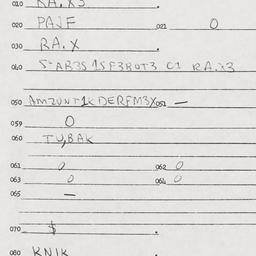 010 RA.X3
020 PAJF 021 0
030 RA.X
040 5-AB3S 1SF3BOT3 C1 RA.X3
050 AMZUNT1K DERFM3X 051 —
059 0
060 TU,BAK
061 0 062 0
063 0 064 0
065 —
070 $
080 KNIK